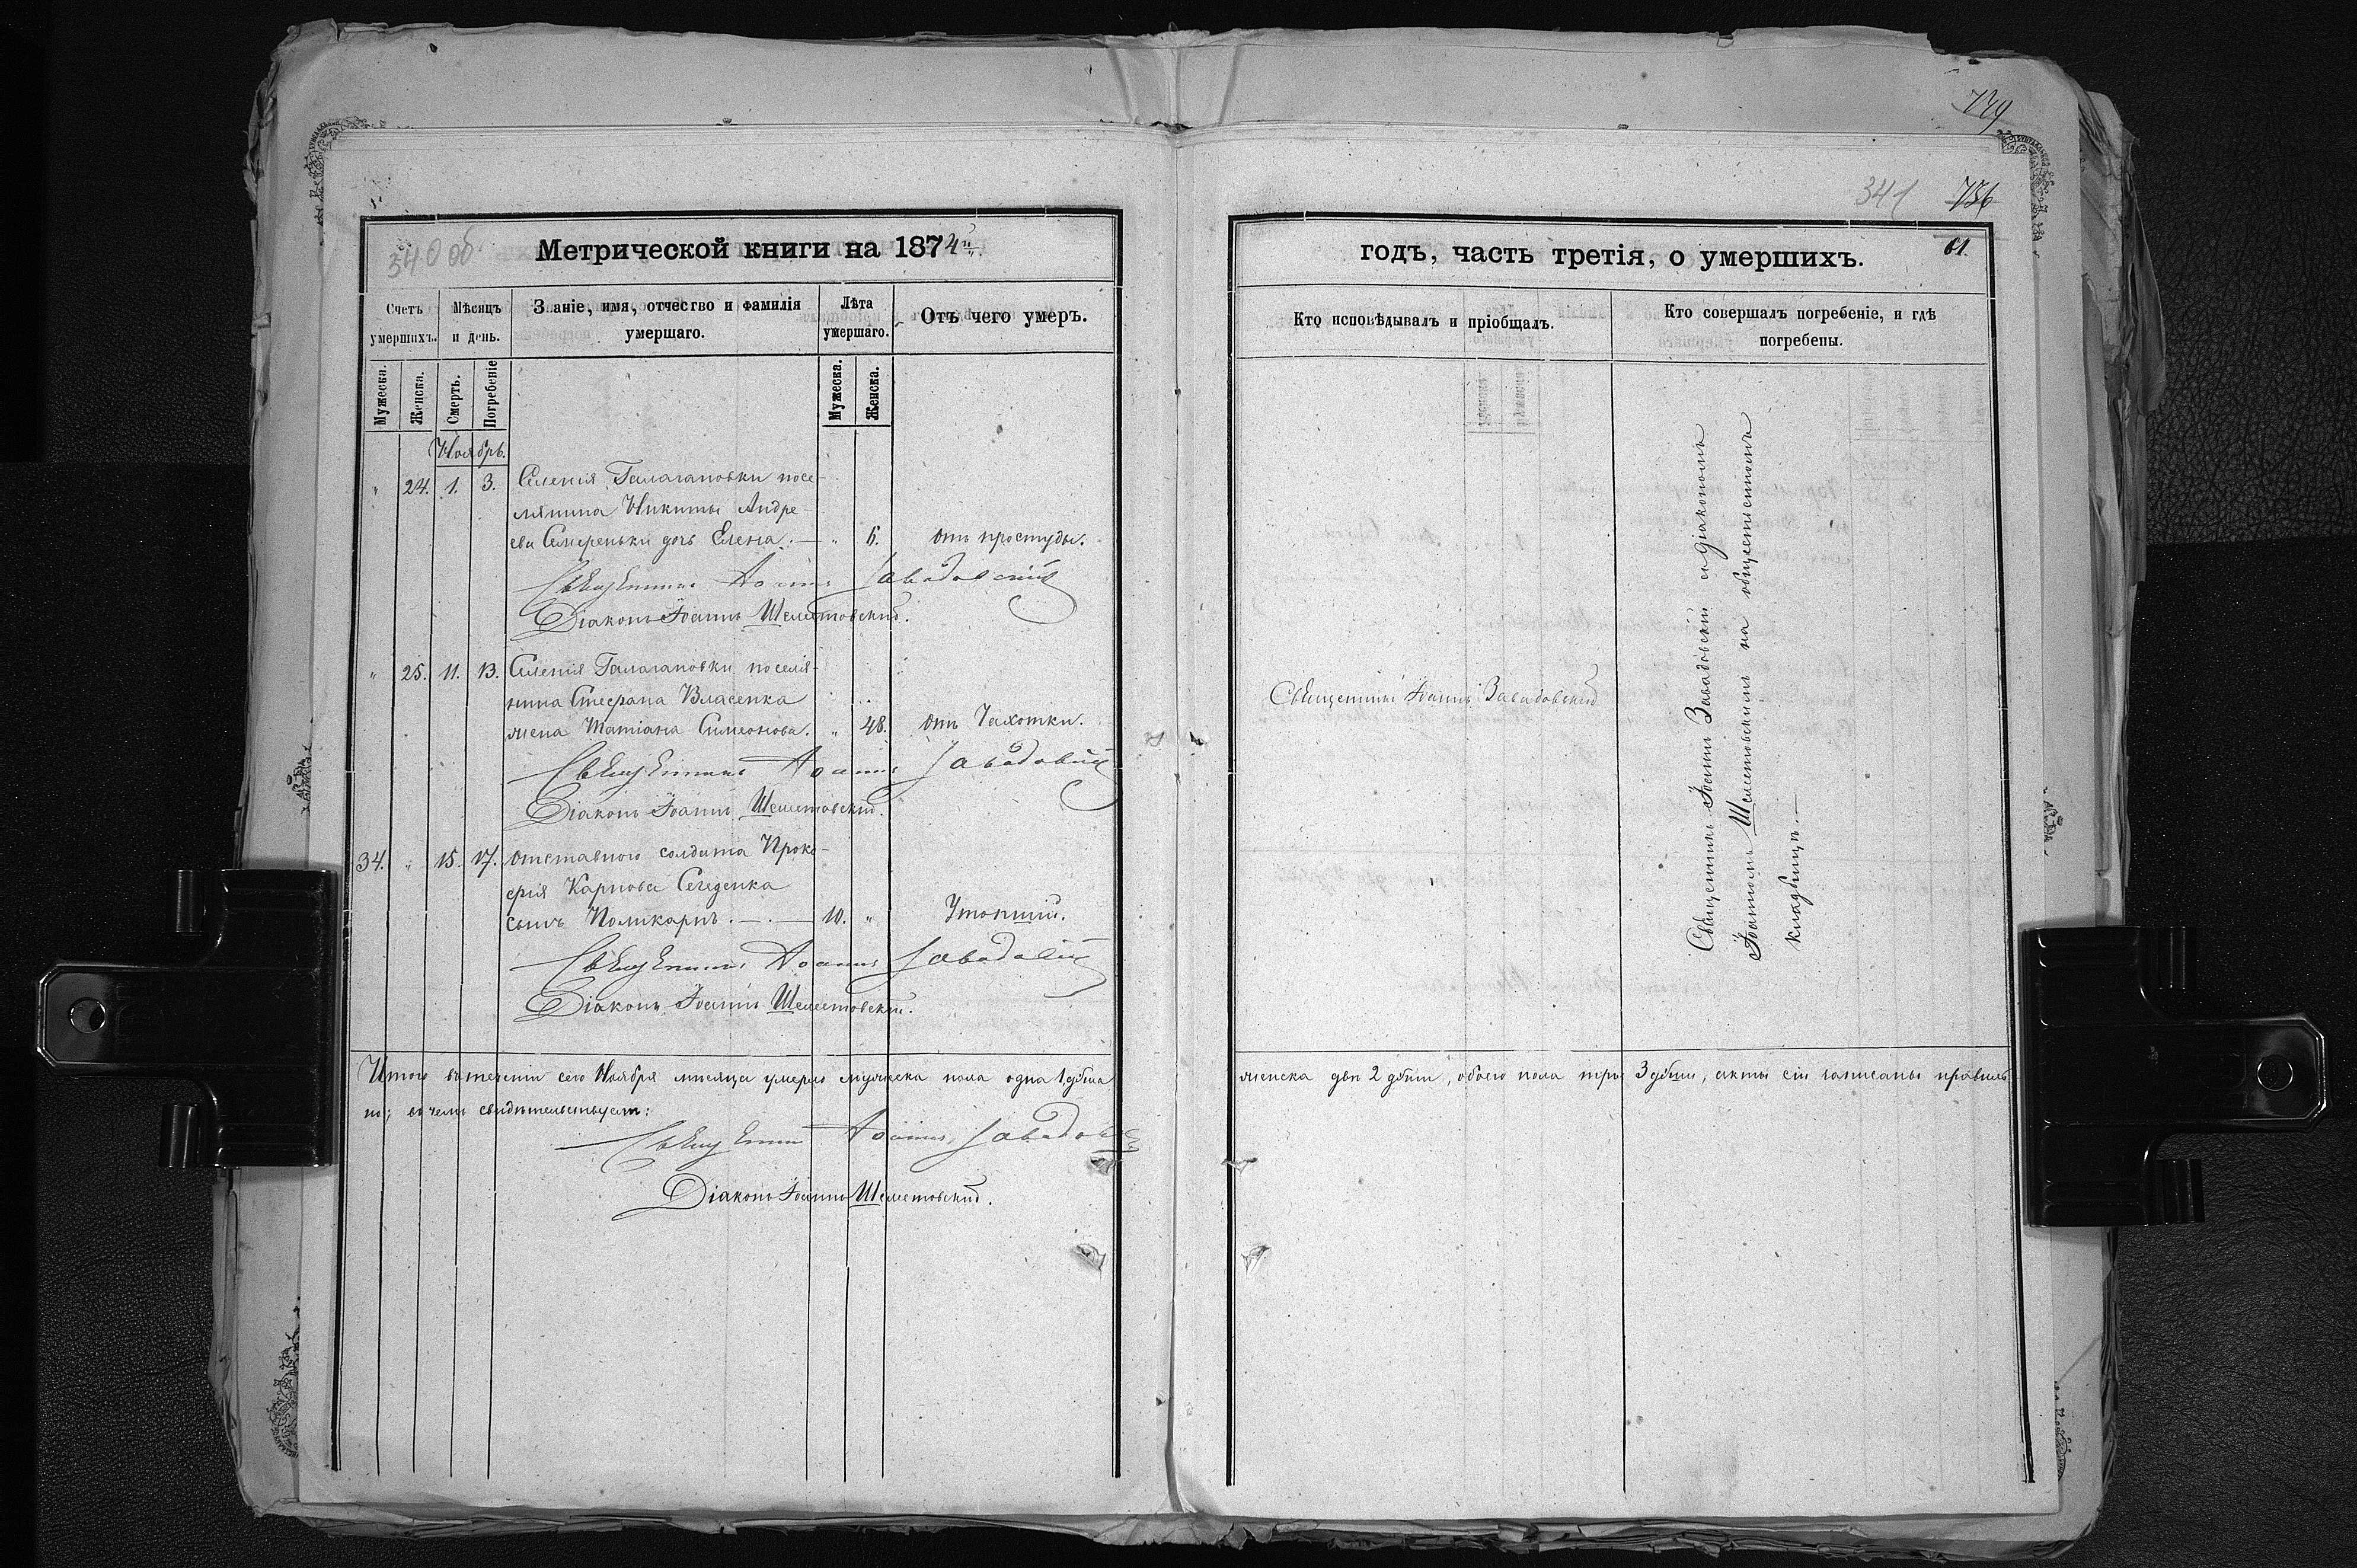 739
341 736
340 об.
Метрической книги на 1874й
годъ, часть третія, о умершихъ.
61.
Счетъ умершихъ.
Мѣсяцъ и день.
Званіе, имя, отчество и фамилія умершаго.
Лѣта умершаго.
Отъ чего умеръ.
Кто исповѣдывалъ и пріобщалъ.
Кто совершалъ погребеніе, и гдѣ погребены.
Мужеска.
Женска.
Смерть.
Погребеніе
Мужеска.
Женска.
Ноябрь.
" 24. 1. 3. Селенія Галагановки посе-
лянина Никиты Андре-
ева Смереньки дочь Елена. — " 6. отъ простуды.
Священникъ Іоаннъ Завадовскій
Діаконъ Іоаннъ Шелетовскій.
" 25. 11. 13. Селенія Галагановки поселя-
нина Стефана Власенка
жена Татіана Симеонова. " 48. отъ Чахотки.
Священникъ Іоаннъ Завадовскій
Діаконъ Іоаннъ Шелетовскій.
34. " 15. 17. Отставного солдата Проко-
фія Карпова
сынъ Поликарпъ. — . — 10. " Утопшій.
Священникъ Іоаннъ Завадовскій
Діаконъ Іоаннъ Шелетовскій.
Священникъ Іоаннъ Завадовскій
Священникъ Іоаннъ Завадовскій съ діакономъ
Іоанномъ Шелетовскимъ на общественномъ
кладбищѣ. —
Итого въ теченіи сего Ноября мѣсяца умерло мужеска пола одна 1 душа
женска двѣ 2 души, обоего пола три 3 души, акты сіи записаны правиль-
но; въ чемъ свидѣтельствуемъ:
Священникъ Іоаннъ Завадовскій
Діаконъ Іоаннъ Шелетовскій.